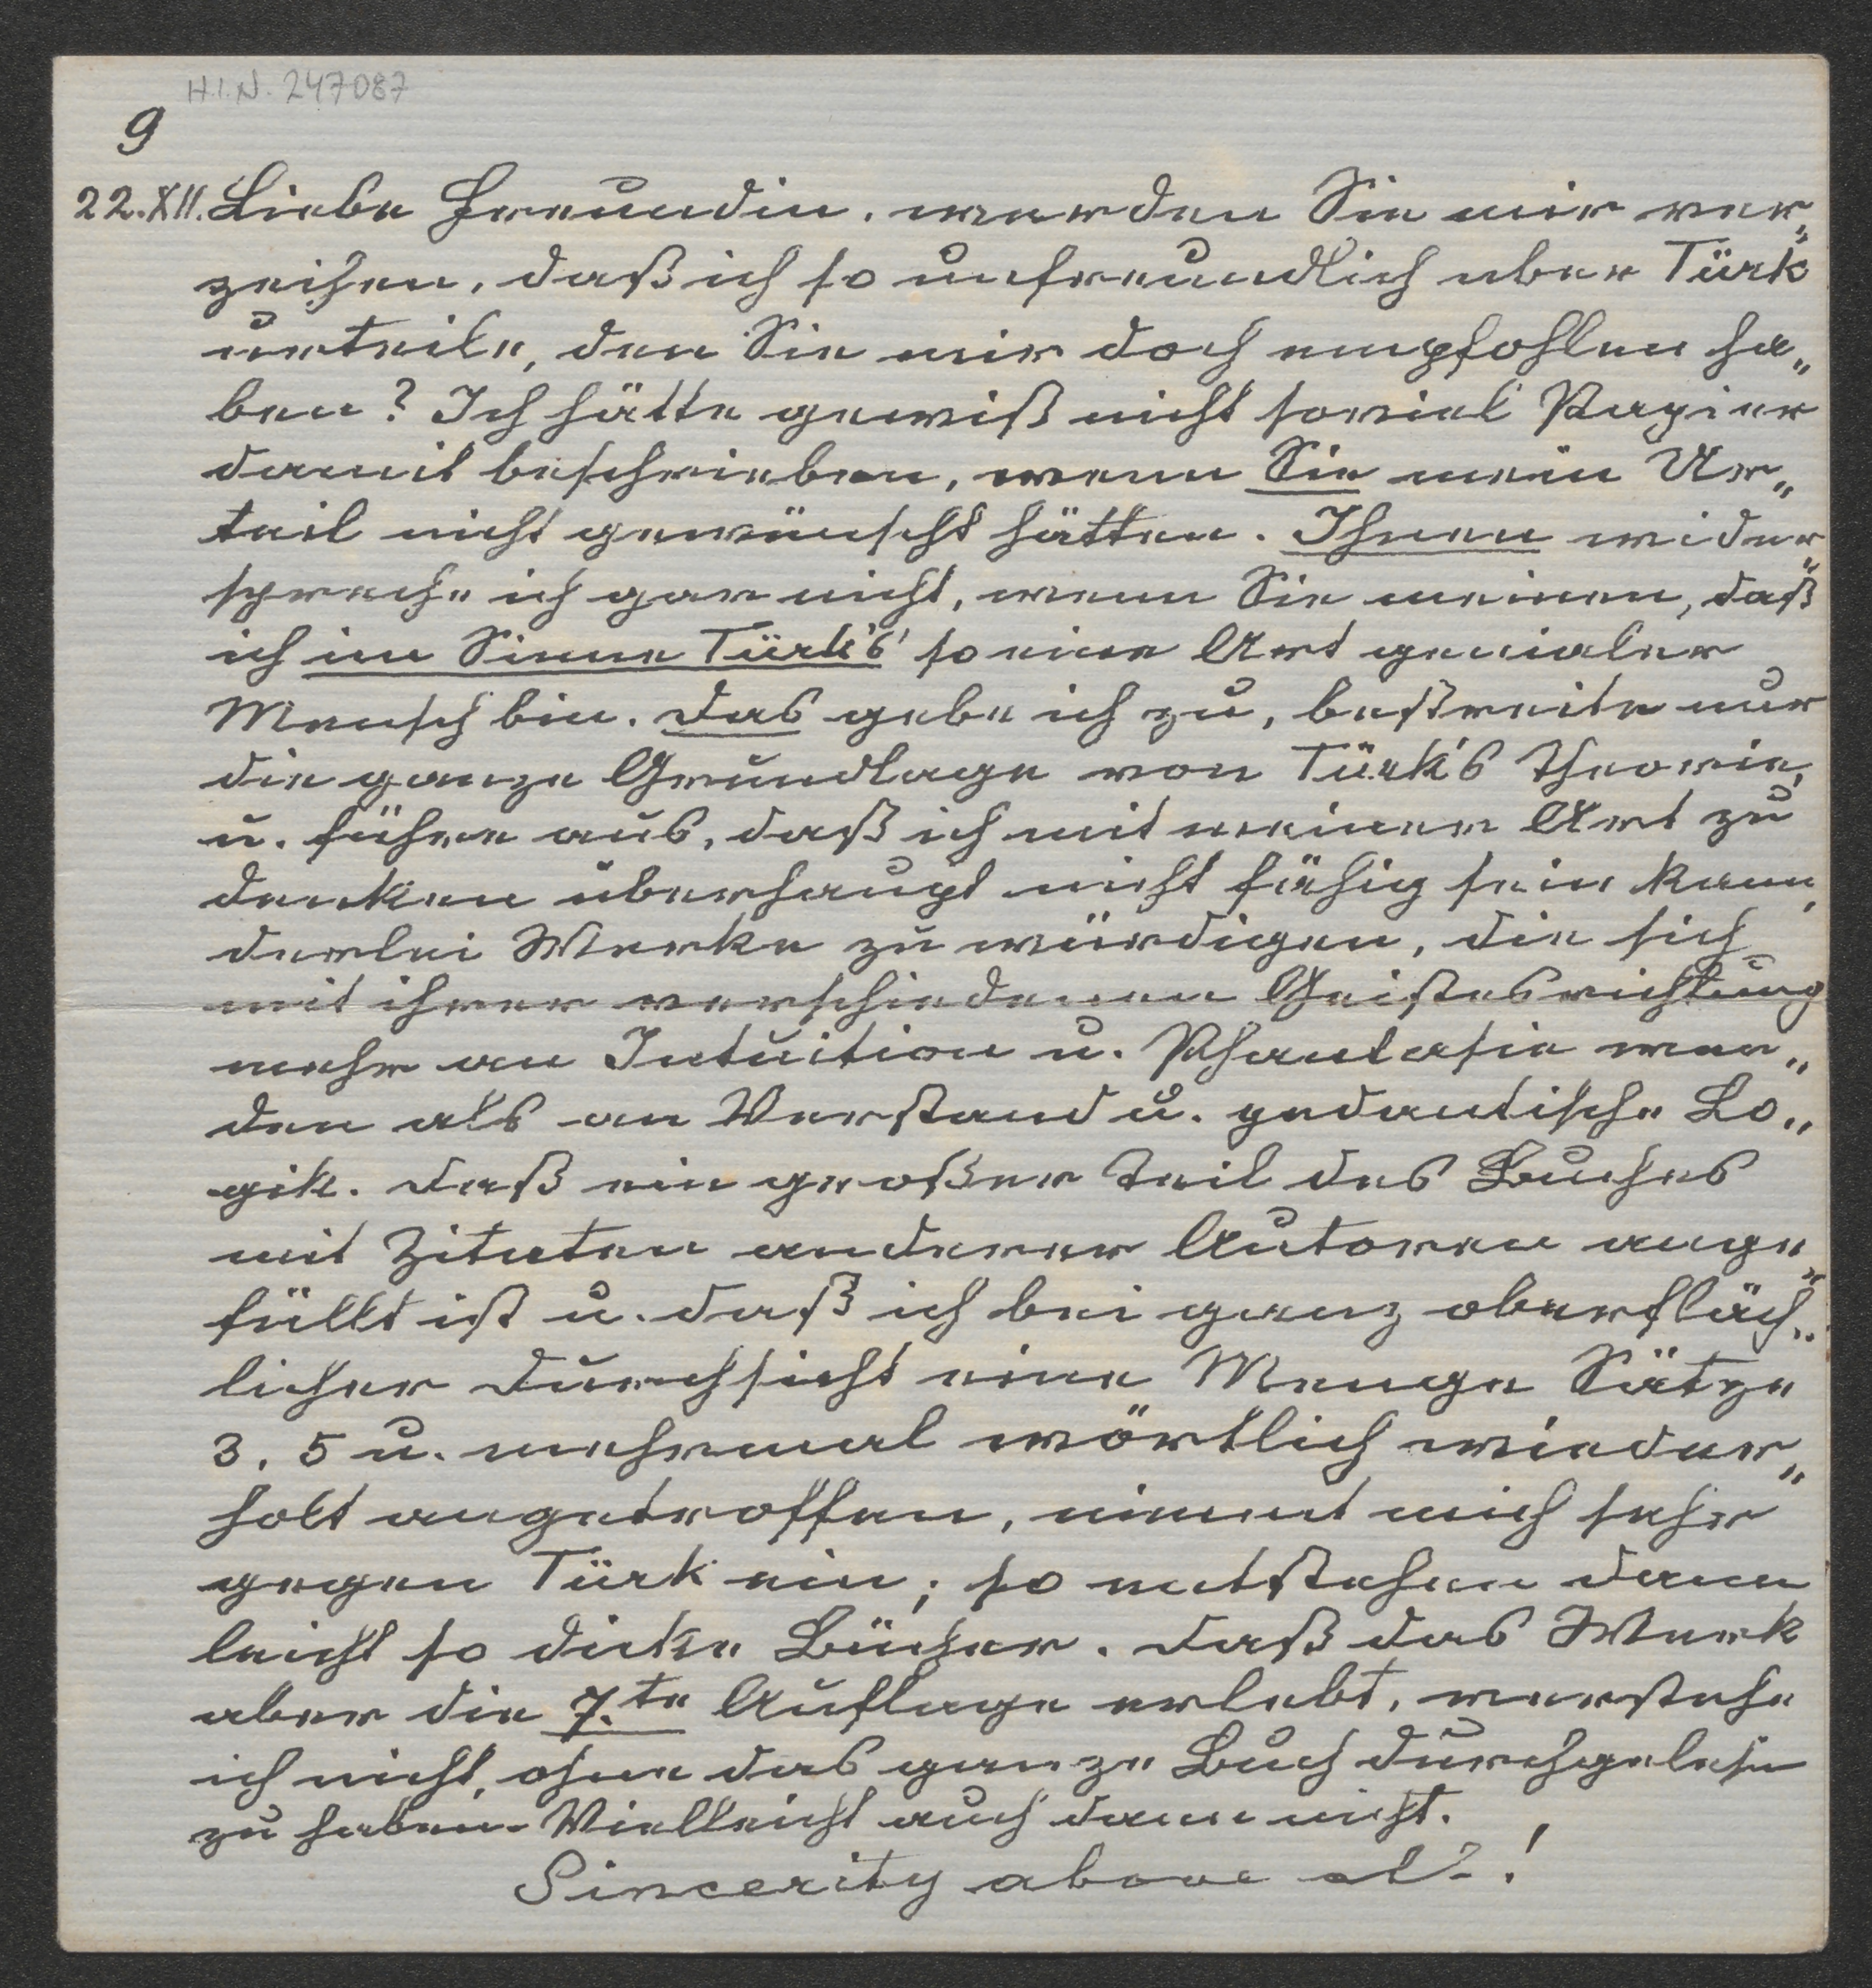 H.I.N. 247087
9
22.XII. Liebe Freundin, werden Sie mir ver„
zeihen, daß ich so unfreundlich über Türk
urteile, den Sie mir doch empfohlen ha„
ben? Ich hätte gewiß nicht soviel Papier
damit beschrieben, wenn Sie mein Ur„
teil nicht gewünscht hätten. Ihnen wider„
spreche ich gar nicht, wenn Sie meinen, daß
ich im Sinne Türk's' so eine Art genialer
Mensch bin. Das gebe ich zu, bestreite nur
die ganze Grundlage von Türk's Theorie,
u. führe aus, daß ich mit meiner Art zu
denken überhaupt nicht fähig sein kann,
derlei Werke zu würdigen, die sich
mit ihrer verschiedenen Geistesrichtung
mehr an Intuition u. Phantasie wen„
den als an Verstand u. pedantische Lo„
gik. Daß ein großer Teil des Buches
mit Zitaten anderer Autoren ange„
füllt ist u. daß ich bei ganz oberfläch„
licher Durchsicht eine Menge Sätze
3, 5 u. mehrmal wörtlich wieder„
holt angetroffen, nimmt mich sehr
gegen Türk ein; so entstehen dann
leicht so dicke Bücher. Daß das Werk
aber die 7.te Auflage erlebt, verstehe
ich nicht, ohne das ganze Buch durchgelesen
zu haben. Vielleicht auch dann nicht.
Sincerity above all!